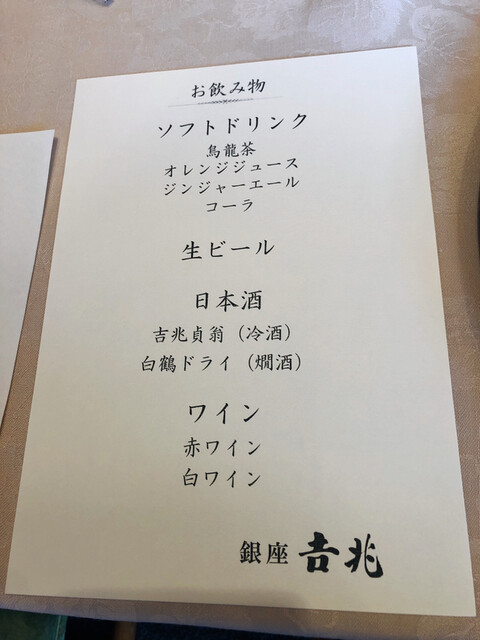 お飲み物
ソフトドリンク
烏龍茶
オレンジジュース
ジンジャーエール
コーラ
生ビール
日本酒
吉兆貞翁（冷酒）
白鶴ドライ（燗酒）
ワイン
赤ワイン
白ワイン
銀座 吉兆